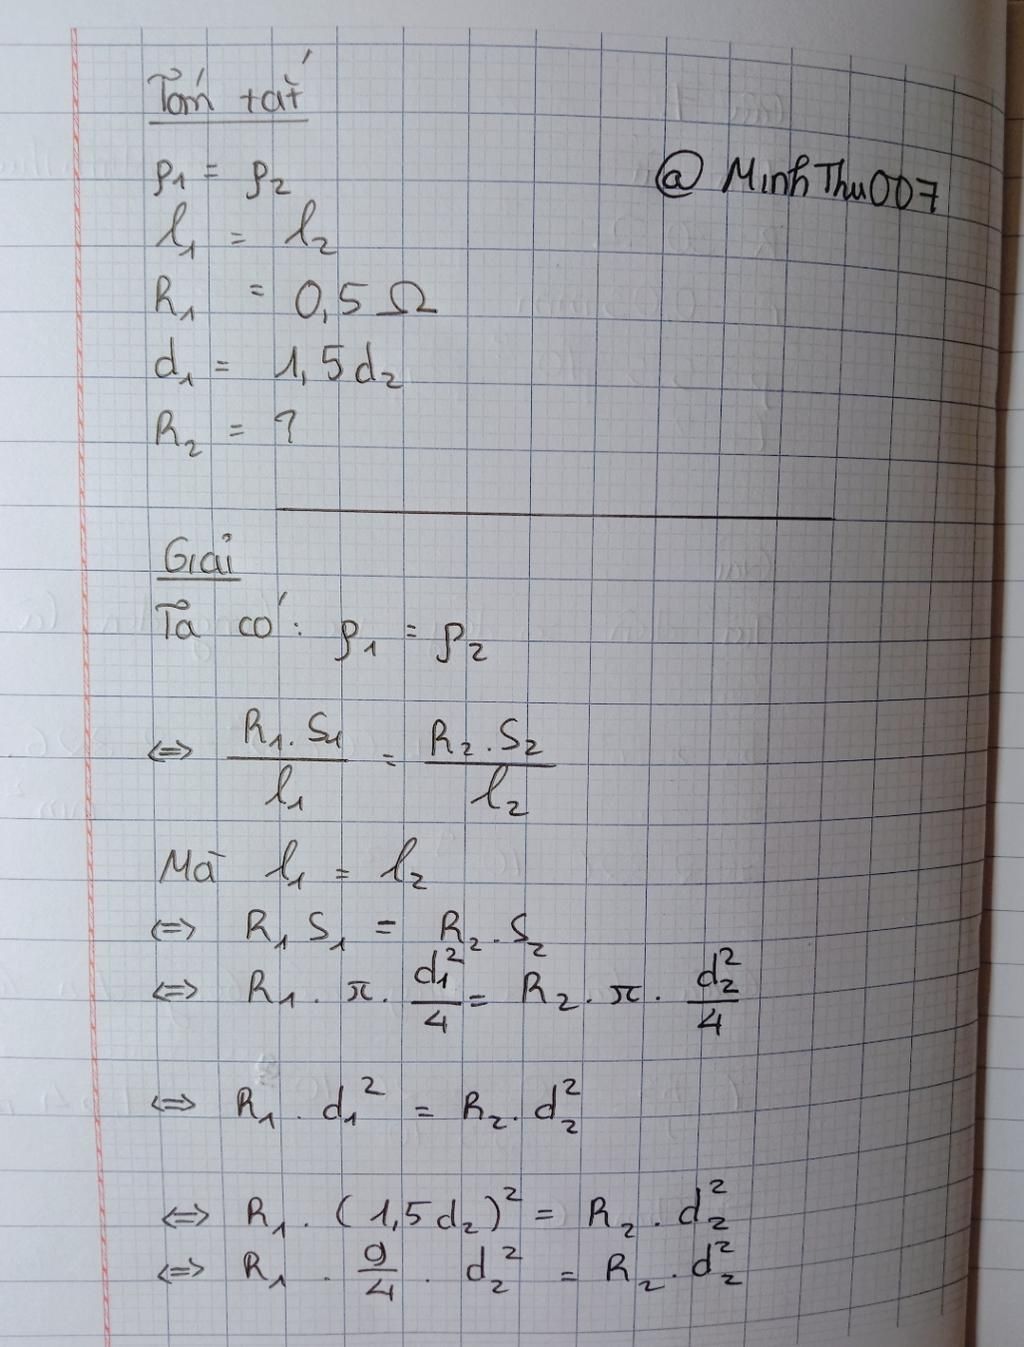 Tóm tắt
@ MinhThu007
ρ₁ = ρ₂
l₁ = l₂
R₁ = 0,5 Ω
d₁ = 1,5 d₂
R₂ = ?
Giải
Ta có: ρ₁ = ρ₂
⇔ R₁.S₁/l₁ = R₂.S₂/l₂
Mà l₁ = l₂
⇔ R₁ S₁ = R₂.S₂
⇔ R₁ . π . d₁²/4 = R₂ . π . d₂²/4
⇔ R₁ . d₁² = R₂ . d₂²
⇔ R₁ . (1,5 d₂)² = R₂ . d₂²
⇔ R₁ . 9/4 . d₂² = R₂ . d₂²